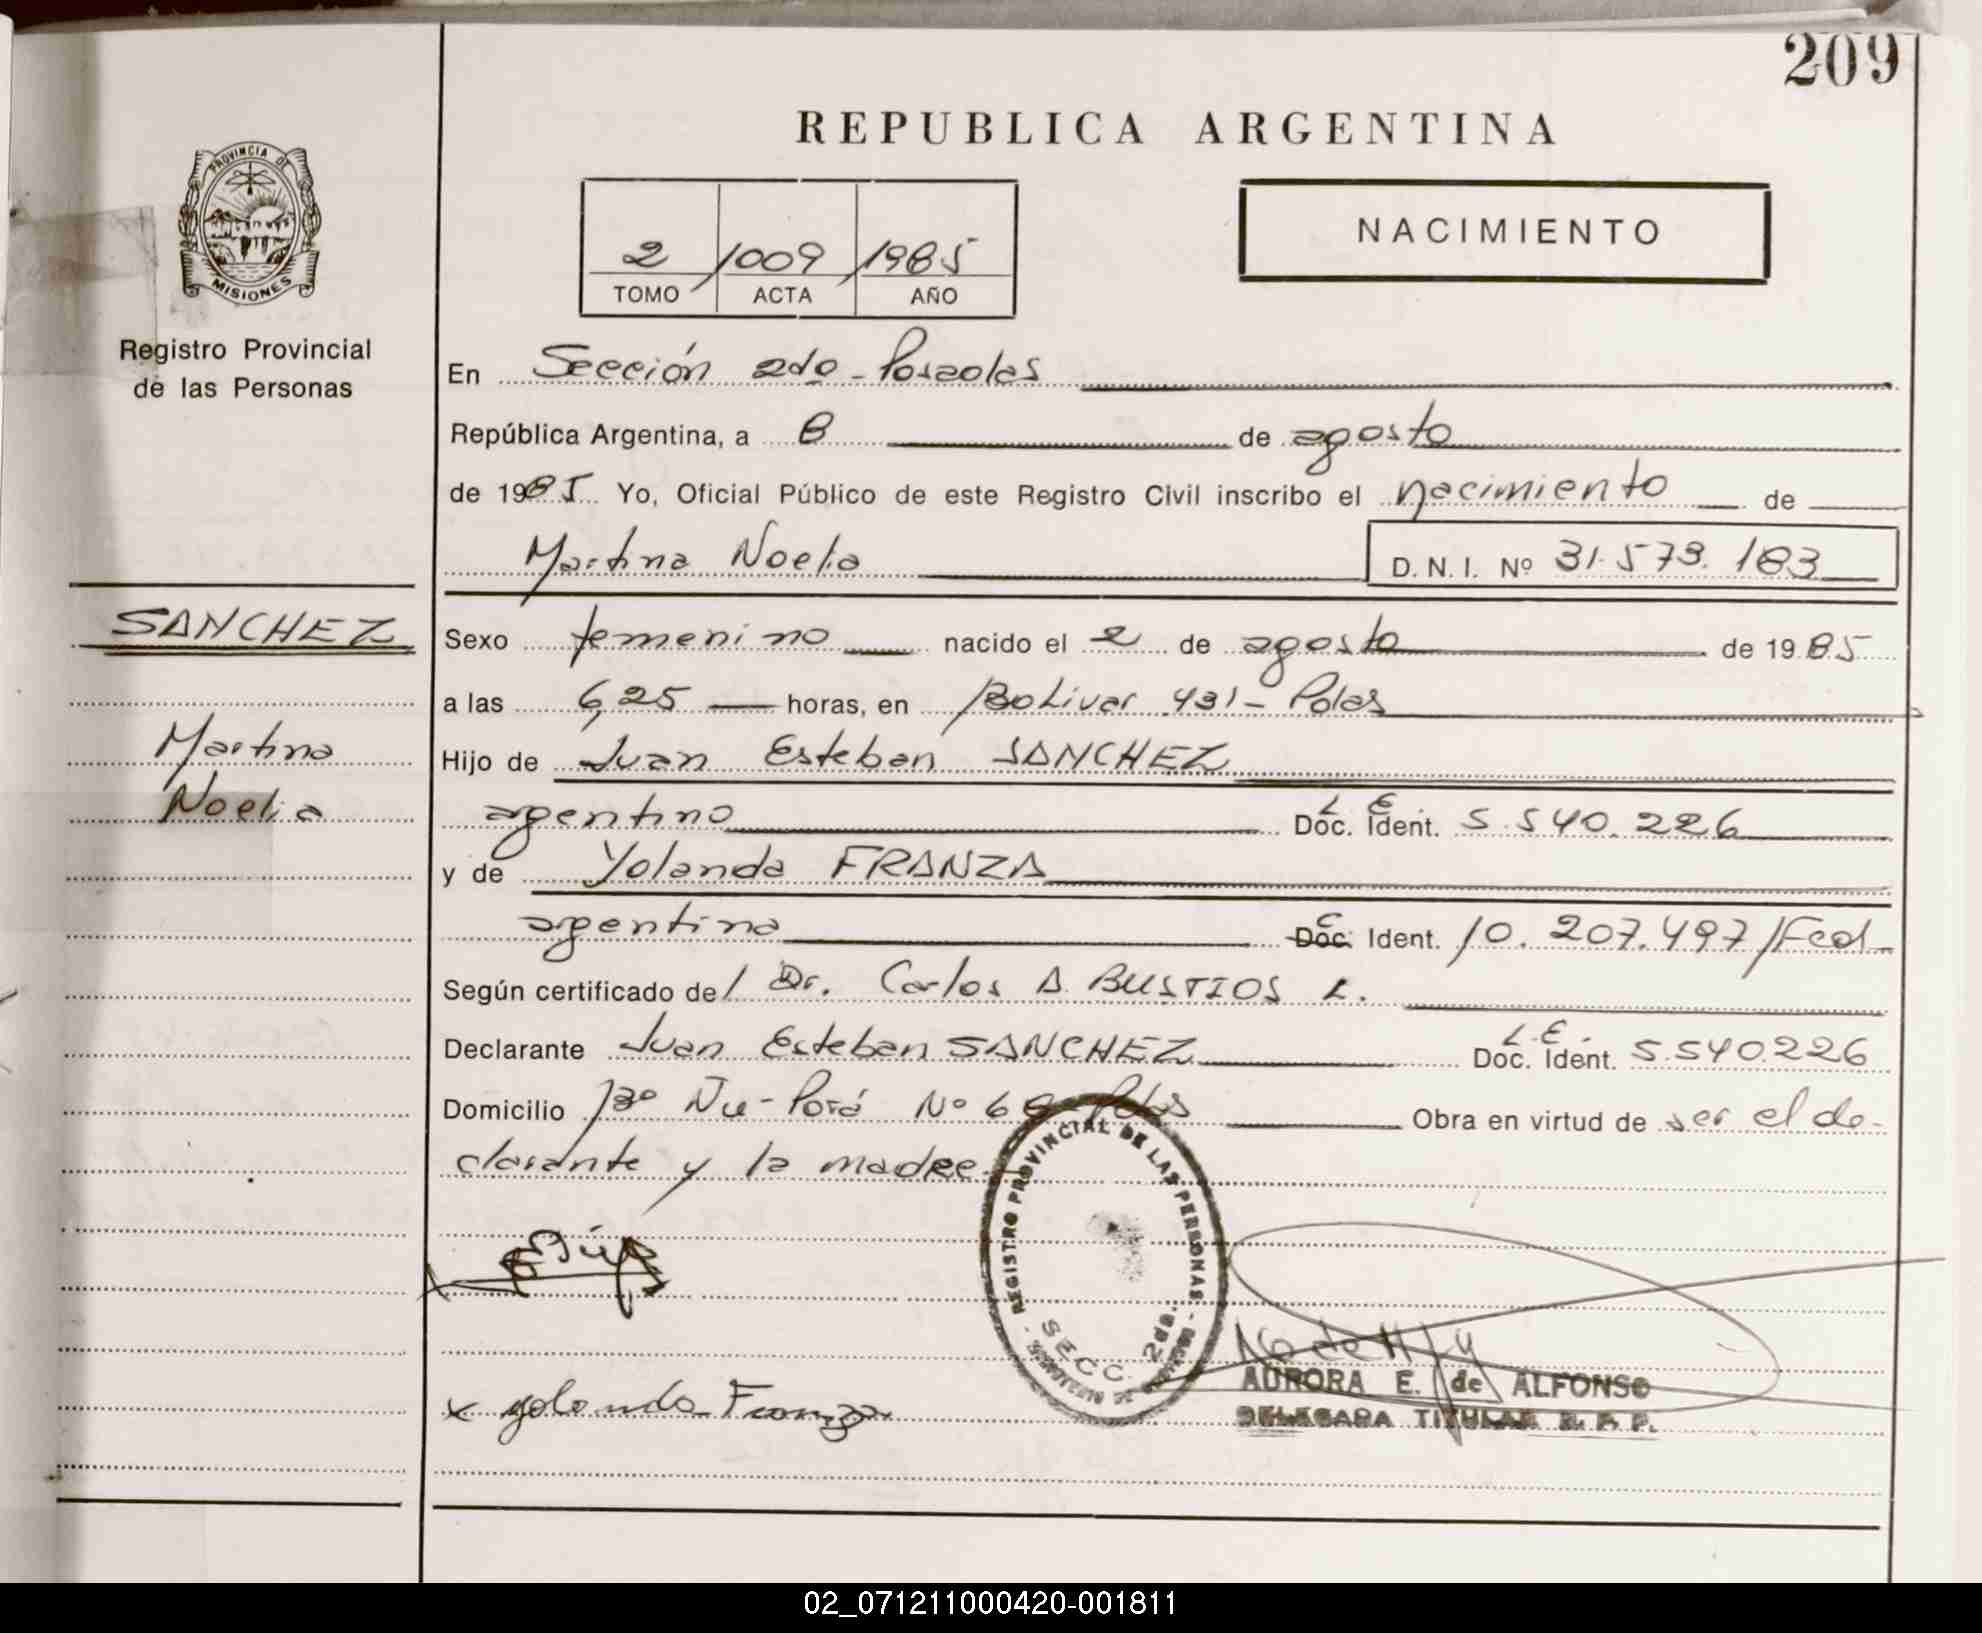 209
REPUBLICA ARGENTINA
PROVINCIA DE
MISIONES
Registro Provincial
de las Personas
2 /1009 /1985
TOMO ACTA AÑO
NACIMIENTO
En Sección 2da - Posadas
República Argentina, a 8 de agosto
de 1985 Yo, Oficial Público de este Registro Civil inscribo el nacimiento de
Martina Noelia D. N. I. Nº 31.573.183
SANCHEZ
Martina
Noelia
Sexo femenino nacido el 2 de agosto de 1985
a las 6,25 horas, en Bolivar 431 - Pdas
Hijo de Juan Esteban SANCHEZ
argentino L E Doc. Ident. 5.540.226
y de Yolanda FRANZA
argentina C Doc. Ident. 10.207.497/Fed
Según certificado del Dr. Carlos A. BUSTIOS L.
Declarante Juan Esteban SANCHEZ L.E. Doc. Ident. 5.540.226
Domicilio Bº Ñu-Porá Nº 68 - Pdas Obra en virtud de ser el de-
clarante y la madre.
REGISTRO PROVINCIAL DE LAS PERSONAS
SECC. 2da.
x Yolanda Franza
AURORA E. de ALFONSO
DELEGADA TITULAR R. P. P.
02_071211000420-001811